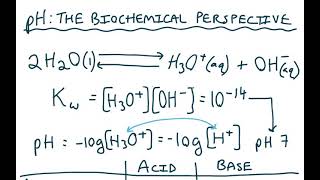 pH: THE BIOCHEMICAL PERSPECTIVE
2H₂O(l) ⇌ H₃O⁺(aq) + OH⁻(aq)
Kw = [H₃O⁺][OH⁻] = 10⁻¹⁴
pH = -log[H₃O⁺] = -log[H⁺] pH 7
ACID BASE